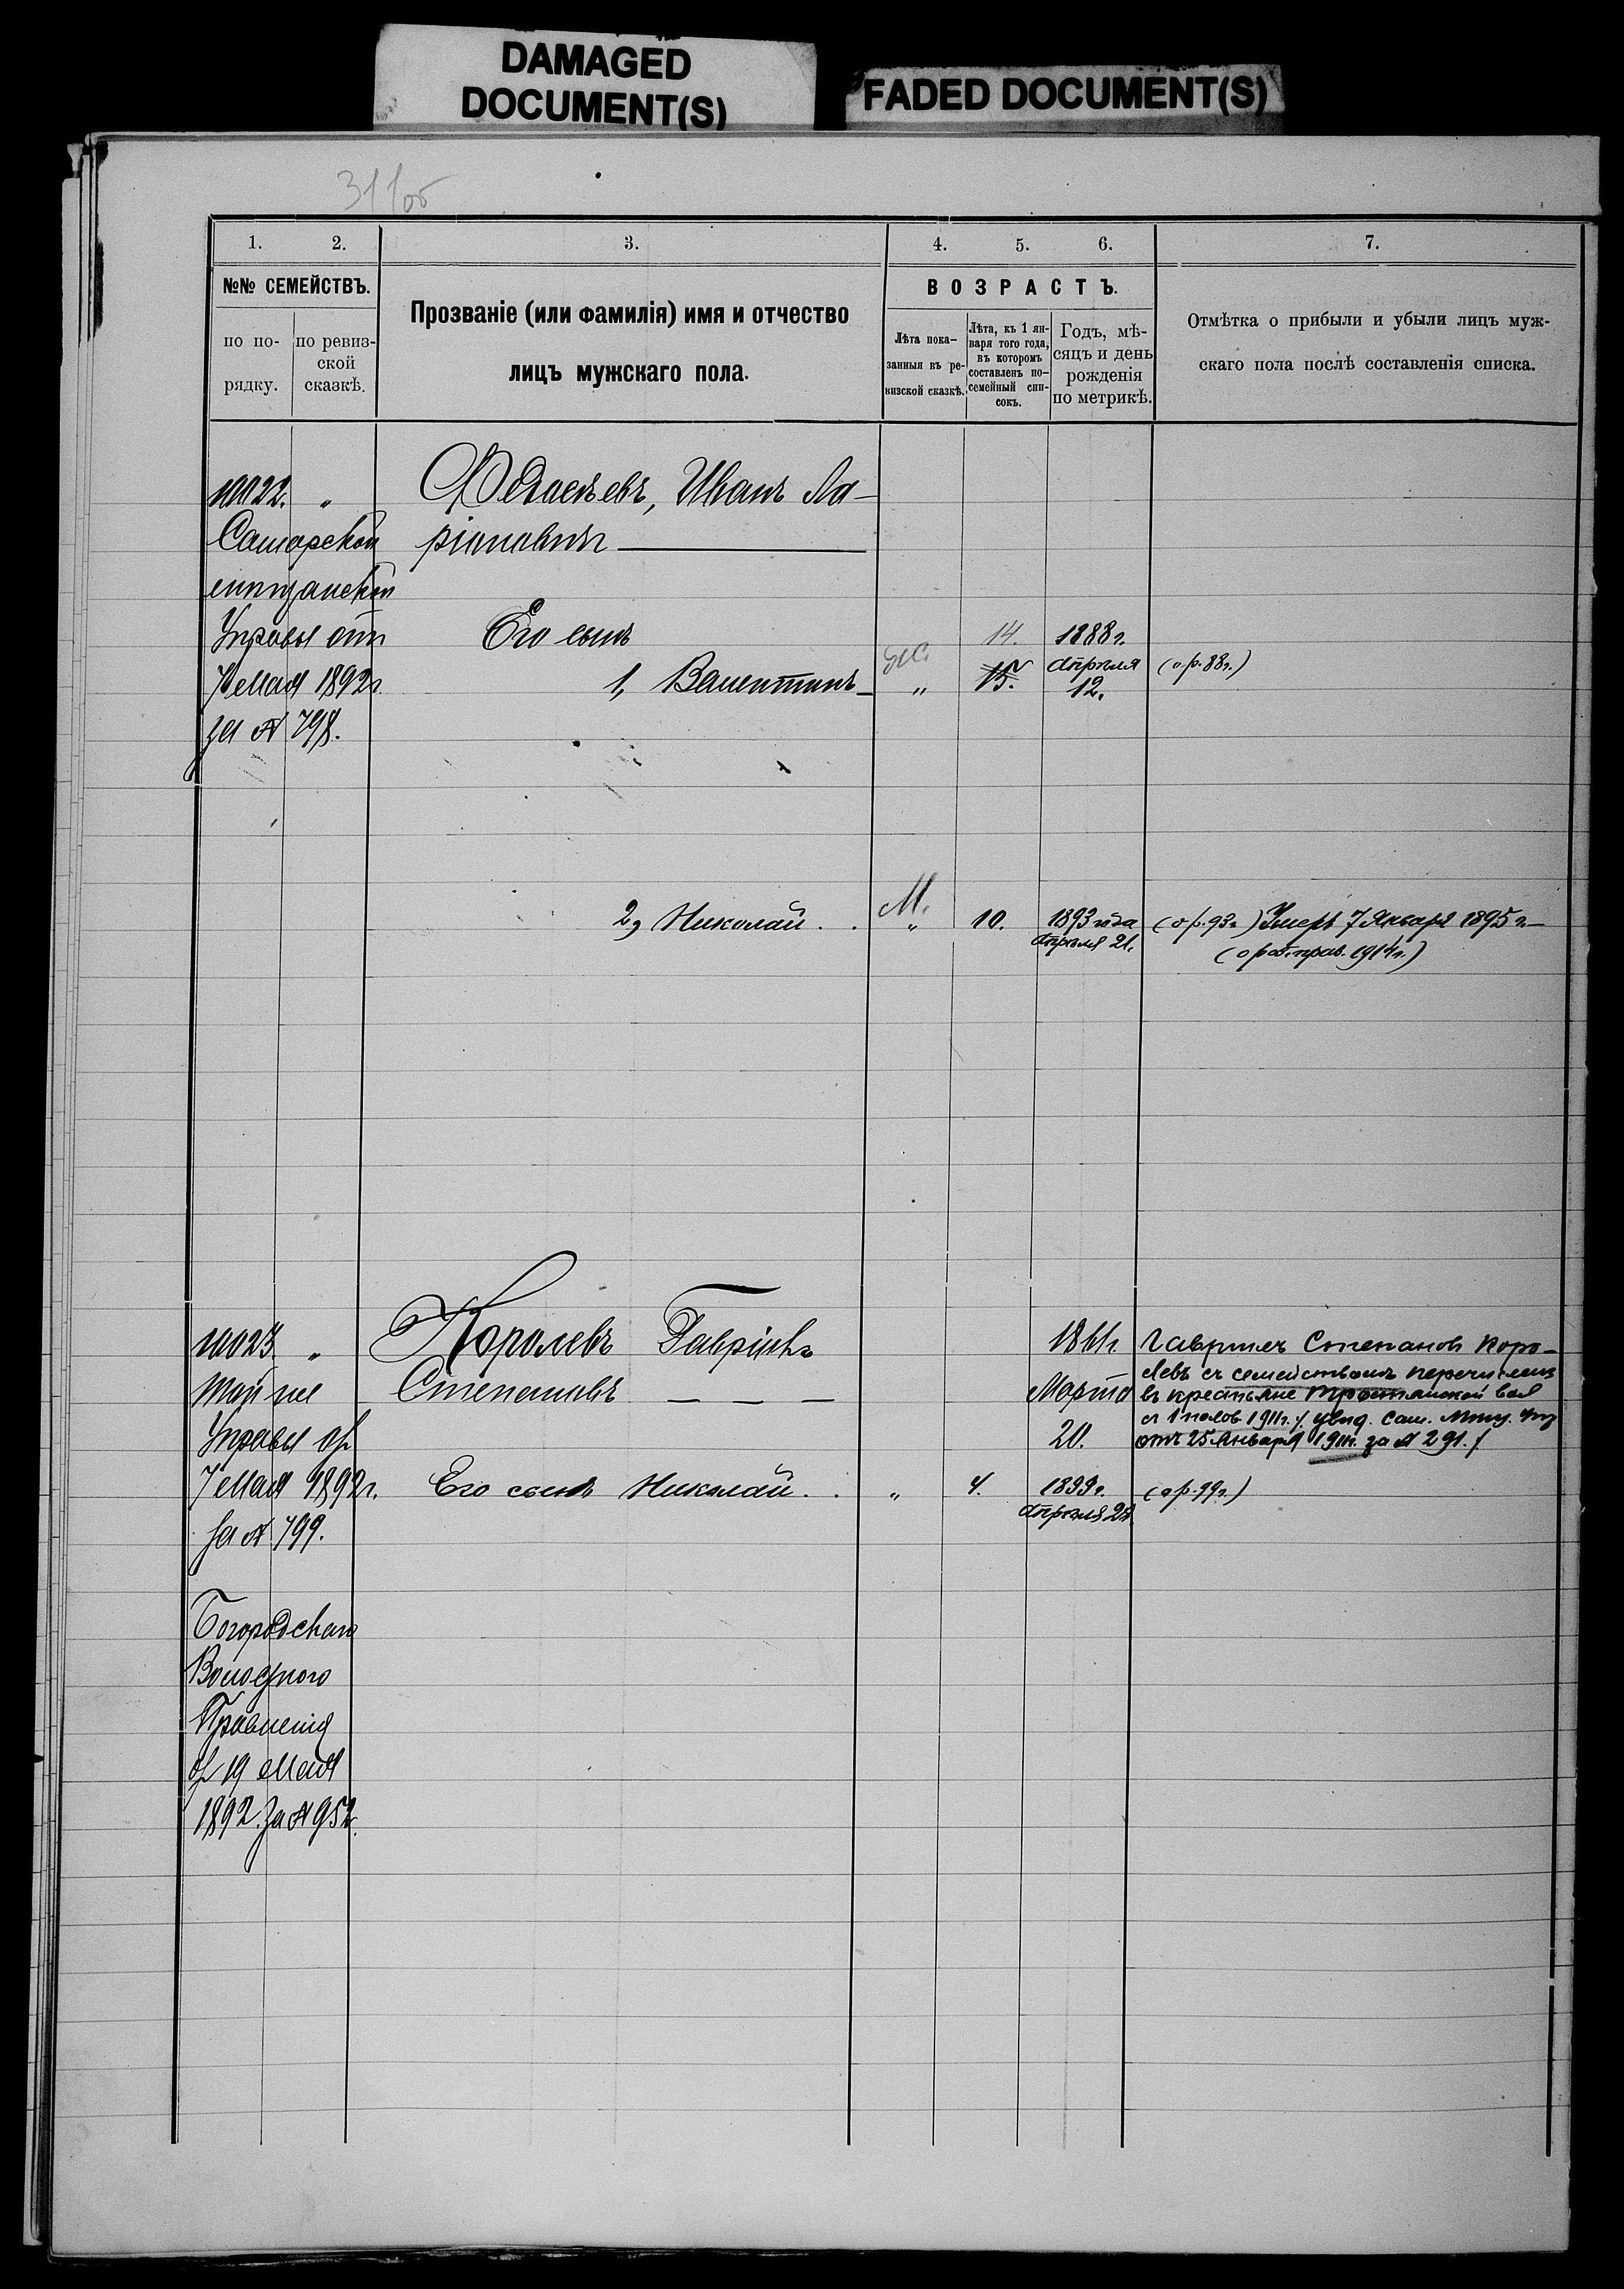 DAMAGED
DOCUMENT(S)
FADED DOCUMENT(S)
31 об
1. 2. 3. 4. 5. 6. 7.
№№ СЕМЕЙСТВЪ.
по по-
рядку.
по ревиз-
ской
сказкѣ.
Прозваніе (или фамилія) имя и отчество
лицъ мужскаго пола.
ВОЗРАСТЪ.
Лѣта пока-
занныя въ ре-
визской сказкѣ.
Лѣта, къ 1 ян-
варя того года,
въ которомъ
составленъ по-
семейный спи-
сокъ.
Годъ, мѣ-
сяцъ и день
рожденія
по метрикѣ.
Отмѣтка о прибыли и убыли лицъ муж-
скаго пола послѣ составленія списка.
Иванъ Ла-
ріоновичъ
Самарской
мѣщанской
Управы отъ
7 Мая 1892 г.
за № 798.
Его сынъ
1, Валентинъ
" 14. 15. 1888 г.
Апрѣля
12.
(о.р. 88 г.)
2, Николай . . М. " 10. 1893 года
Апрѣля 21.
(о.р. 93 г.) Умеръ 7 Января 1895 г.
1914 г.)
" Королевъ Гавріилъ
Степановъ — — —
1861 г.
Марта
20.
Той же
Управы от
7 Мая 1892 г.
за № 799.
Гавриилъ Степановъ Коро-
левъ съ семействомъ перечисленъ
въ крестьяне вол
съ 1 полов. 1911 г. /увѣд. Сам. Мѣщ. Упр
отъ 25 Января 1911 г. за № 291./
Его сынъ Николай . . " 4. 1899 г. (о.р. 99 г.)
Апрѣля
Богородскаго
Волостного
Правленія
от 19 Мая
1892 за № 952.